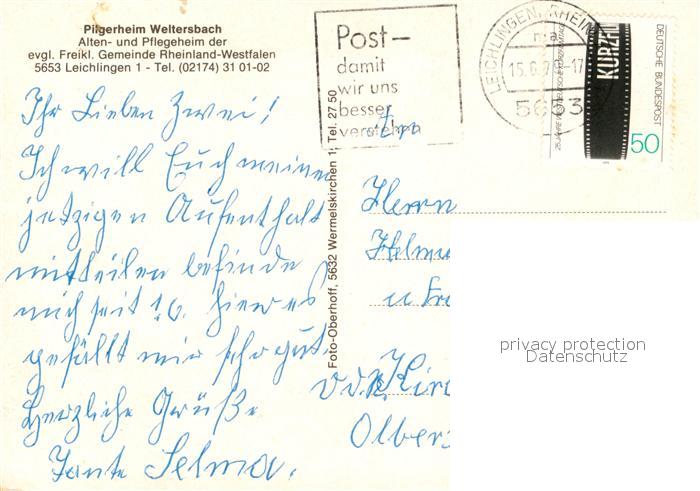 Pilgerheim Weltersbach
Alten- und Pflegeheim der
evgl. Freikl. Gemeinde Rheinland-Westfalen
5653 Leichlingen 1 - Tel. (02174) 31 01-02
Ihr Lieben Zwei!
Ich will Euch meinen
jetzigen Aufenthalt
mitteilen befinde
mich seit 1.6. hier es
gefällt mir sehr gut
Herzliche Grüße
Tante Selma.
Foto-Oberhoff, 5632 Wermelskirchen 1, Tel. 27 50
Post-
damit
wir uns
besser
verstehen
LEICHLINGEN, RHEINL
5653
25 JAHRE WESTDEUTSCHE KURZFILMTAGE
KURZFI
DEUTSCHE BUNDESPOST
50
An
Herrn
Helmu
u Fra
Kirc
Olbers
privacy protection
Datenschutz